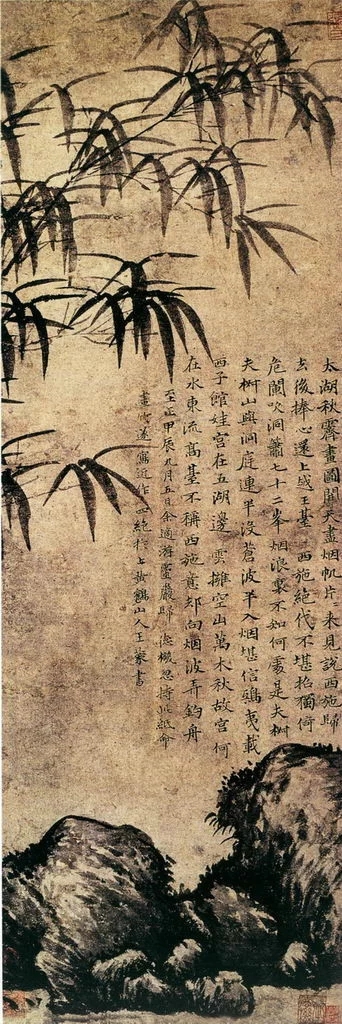 太湖秋霽畫圖開天盡烟帆片〻來見說西施歸
去後捧心還上感王臺 西施絕代不堪招獨倚
危闌吹洞簫七十二峯烟浪裏不知何處是夫椒
夫椒山與洞庭連半沒蒼波半入烟堪信鴟夷載
西子館娃宮在五湖邊 雲擁空山萬木秋故宮何
在水東流高臺不稱西施意却向烟波弄釣舟
至正甲辰九月五日余適游靈巖歸 德機忽持此紙命
畫竹遂寫近作四絕於上黃鶴山人王蒙書